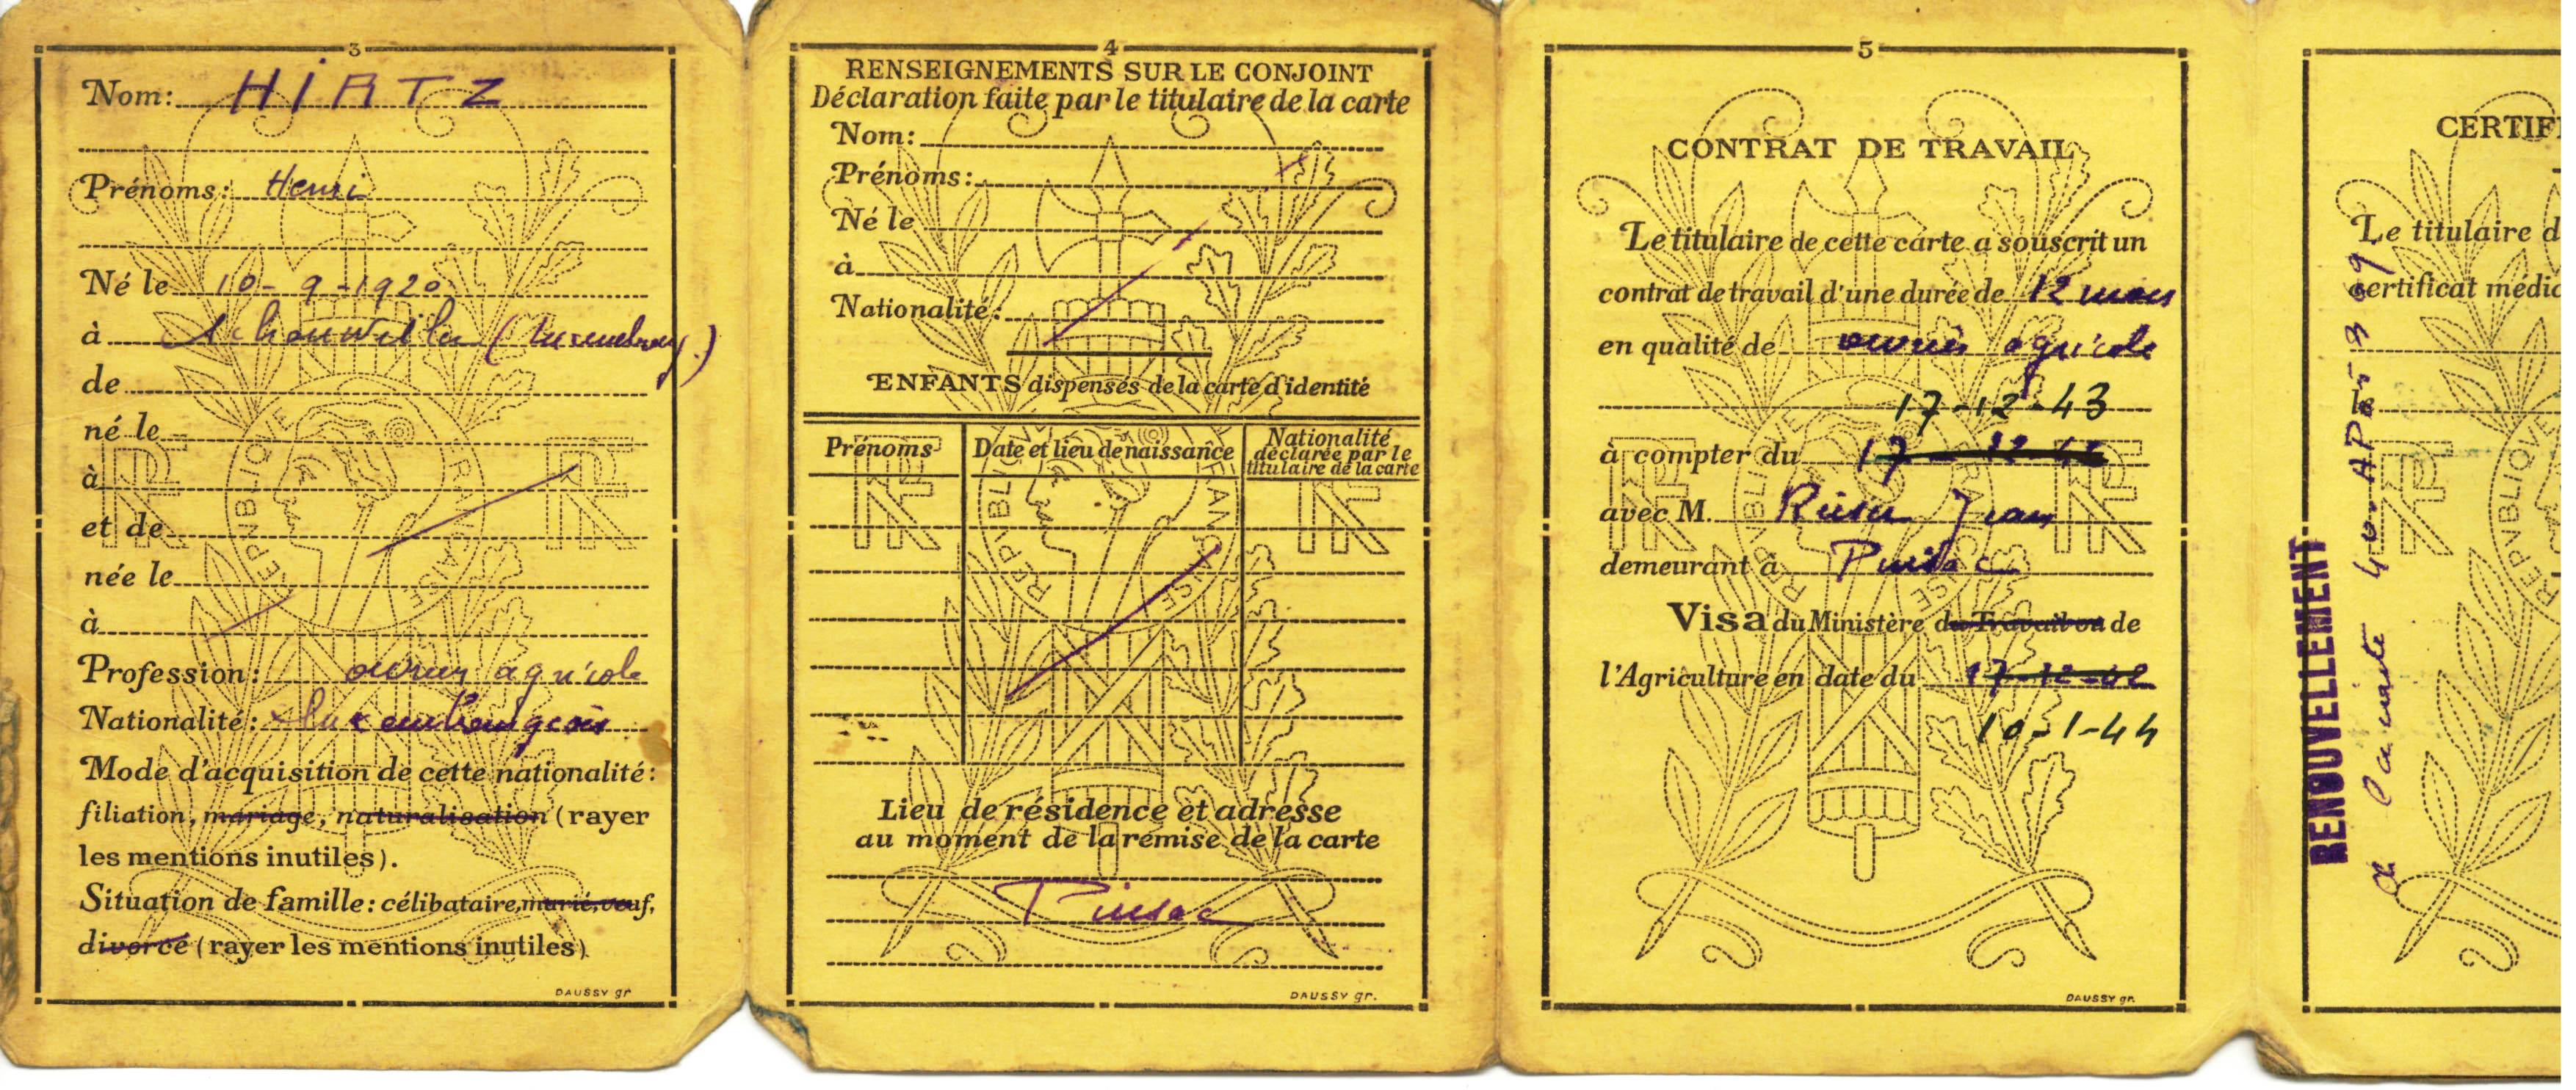 3
Nom: HIRTZ
Prénoms: Henri
Né le 10-9-1920
à Schouweiler (Luxembourg.)
de
né le
à
et de
née le
à
Profession: ouvrier agricole
Nationalité: luxembourgeois
Mode d'acquisition de cette nationalité:
filiation, mariage, naturalisation (rayer
les mentions inutiles).
Situation de famille: célibataire, marié, veuf,
divorcé (rayer les mentions inutiles)
DAUSSY gr
4
RENSEIGNEMENTS SUR LE CONJOINT
Déclaration faite par le titulaire de la carte
Nom:
Prénoms:
Né le
à
Nationalité:
ENFANTS dispensés de la carte d'identité
Prénoms
Date et lieu de naissance
Nationalité
déclarée par le
titulaire de la carte
Lieu de résidence et adresse
au moment de la remise de la carte
Pinsac
DAUSSY gr.
5
CONTRAT DE TRAVAIL
Le titulaire de cette carte a souscrit un
contrat de travail d'une durée de 12 mois
en qualité de ouvrier agricole
17-12-43
à compter du 17-12-42
avec M. Jean
demeurant à Pinsac
Visa du Ministère du Travail ou de
l'Agriculture en date du 17-12-42
10-1-44
DAUSSY gr.
CERTIF
Le titulaire d
certificat médic
RENOUVELLEMENT
RF
RF
REPVBLIQVE FRANÇAISE
RF
RF
REPVBLIQVE FRANÇAISE
RF
RF
REPVBLIQVE FRANÇAISE
RF
REPVBLIQVE